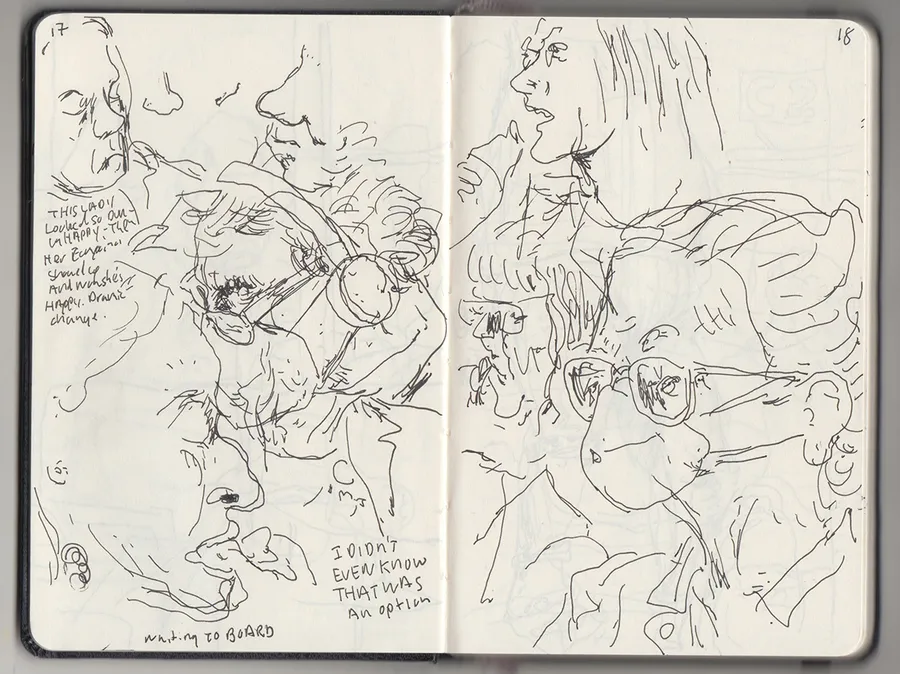 17
18
THIS LADY
Looked so Un-
UNHAPPY - Then
Her
showed up
And now she's
Happy. Dramic
change.
I DIDN'T
EVEN KNOW
THAT WAS
An option
waiting TO BOARD